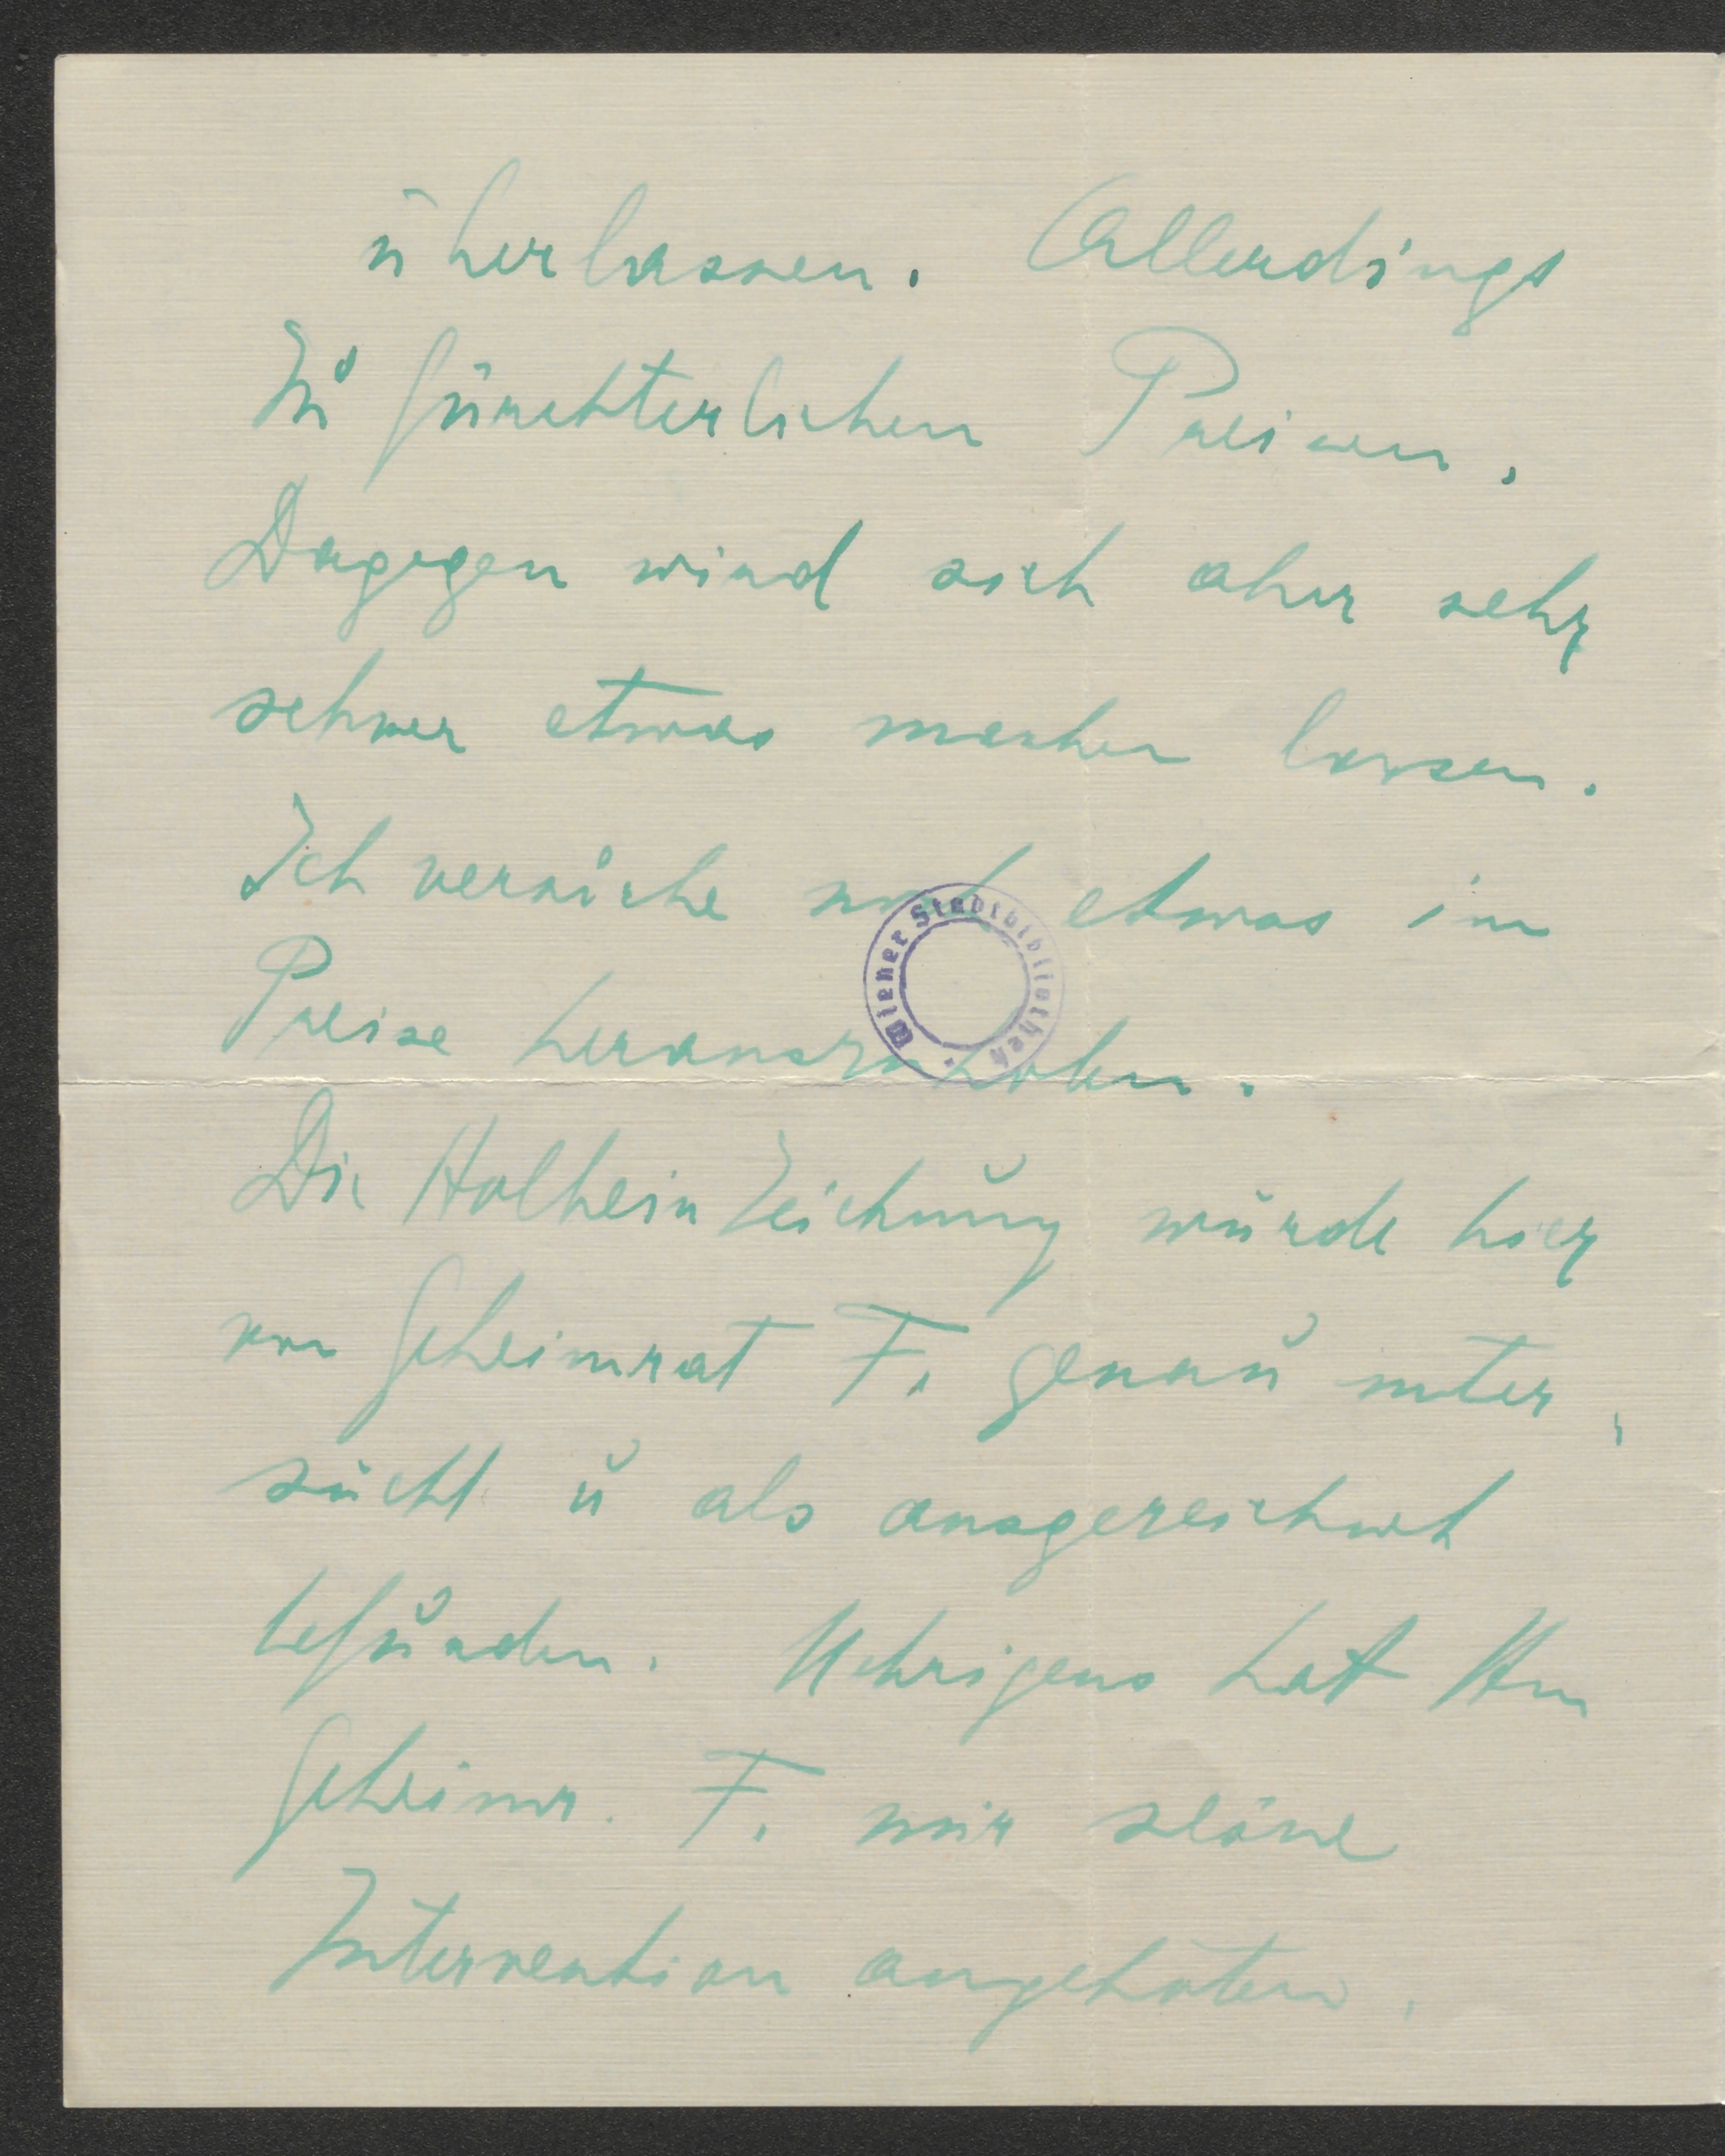 überlassen. Allerdings
zu fürchterlichen Preisen.
Dagegen wird sich aber sehr
schwer etwas machen lassen.
Ich versuche noch etwas im
Preise herauszuholen.
Wiener Stadtbibliothek
Die Holbein Zeichnung wurde hier
von Geheimrat F. genau unter
sucht u als ausgezeichnet
befunden. Uebrigens hat Hr
Geheimr. F. mir seine
Intervention angeboten.